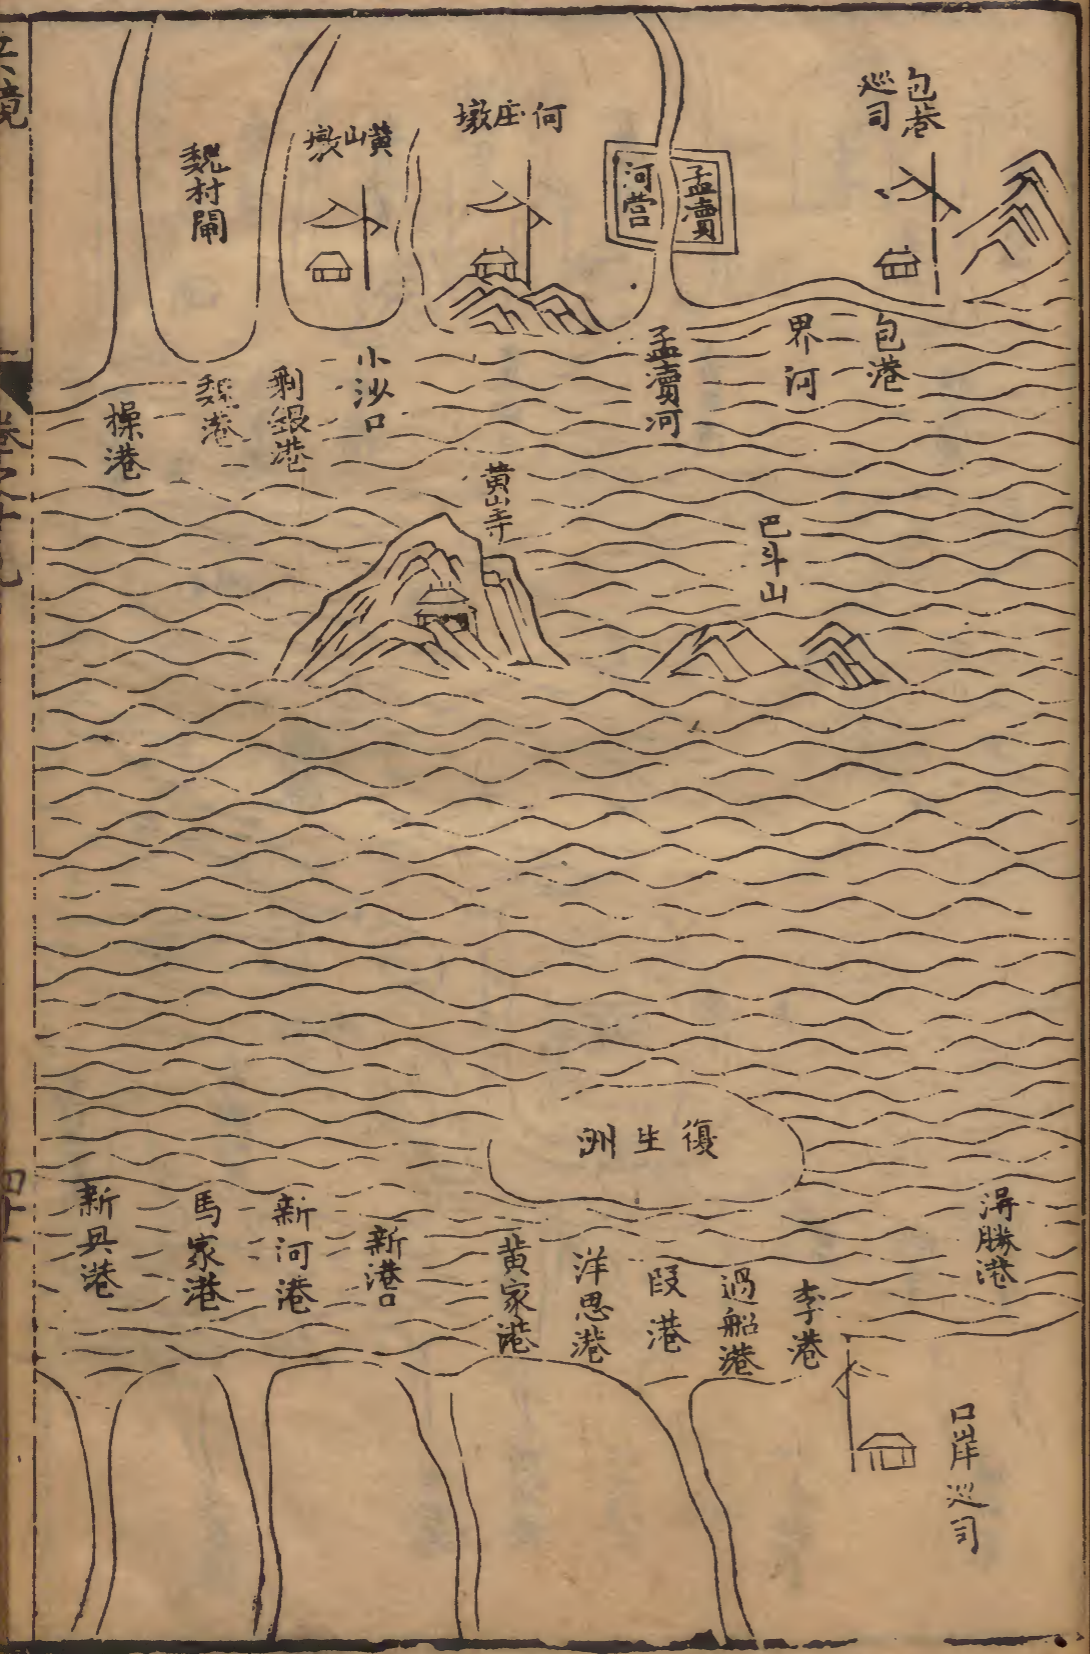 包巷
巡司
孟瀆
河营
何庄墩
黄山墩
魏村閘
包港
界河
孟瀆河
小沙口
剩銀港
魏港
操港
黄山寺
巴斗山
復生洲
得勝港
李港
過船港
段港
洋思港
黄家港
新港口
新河港
馬家港
新興港
口岸巡司